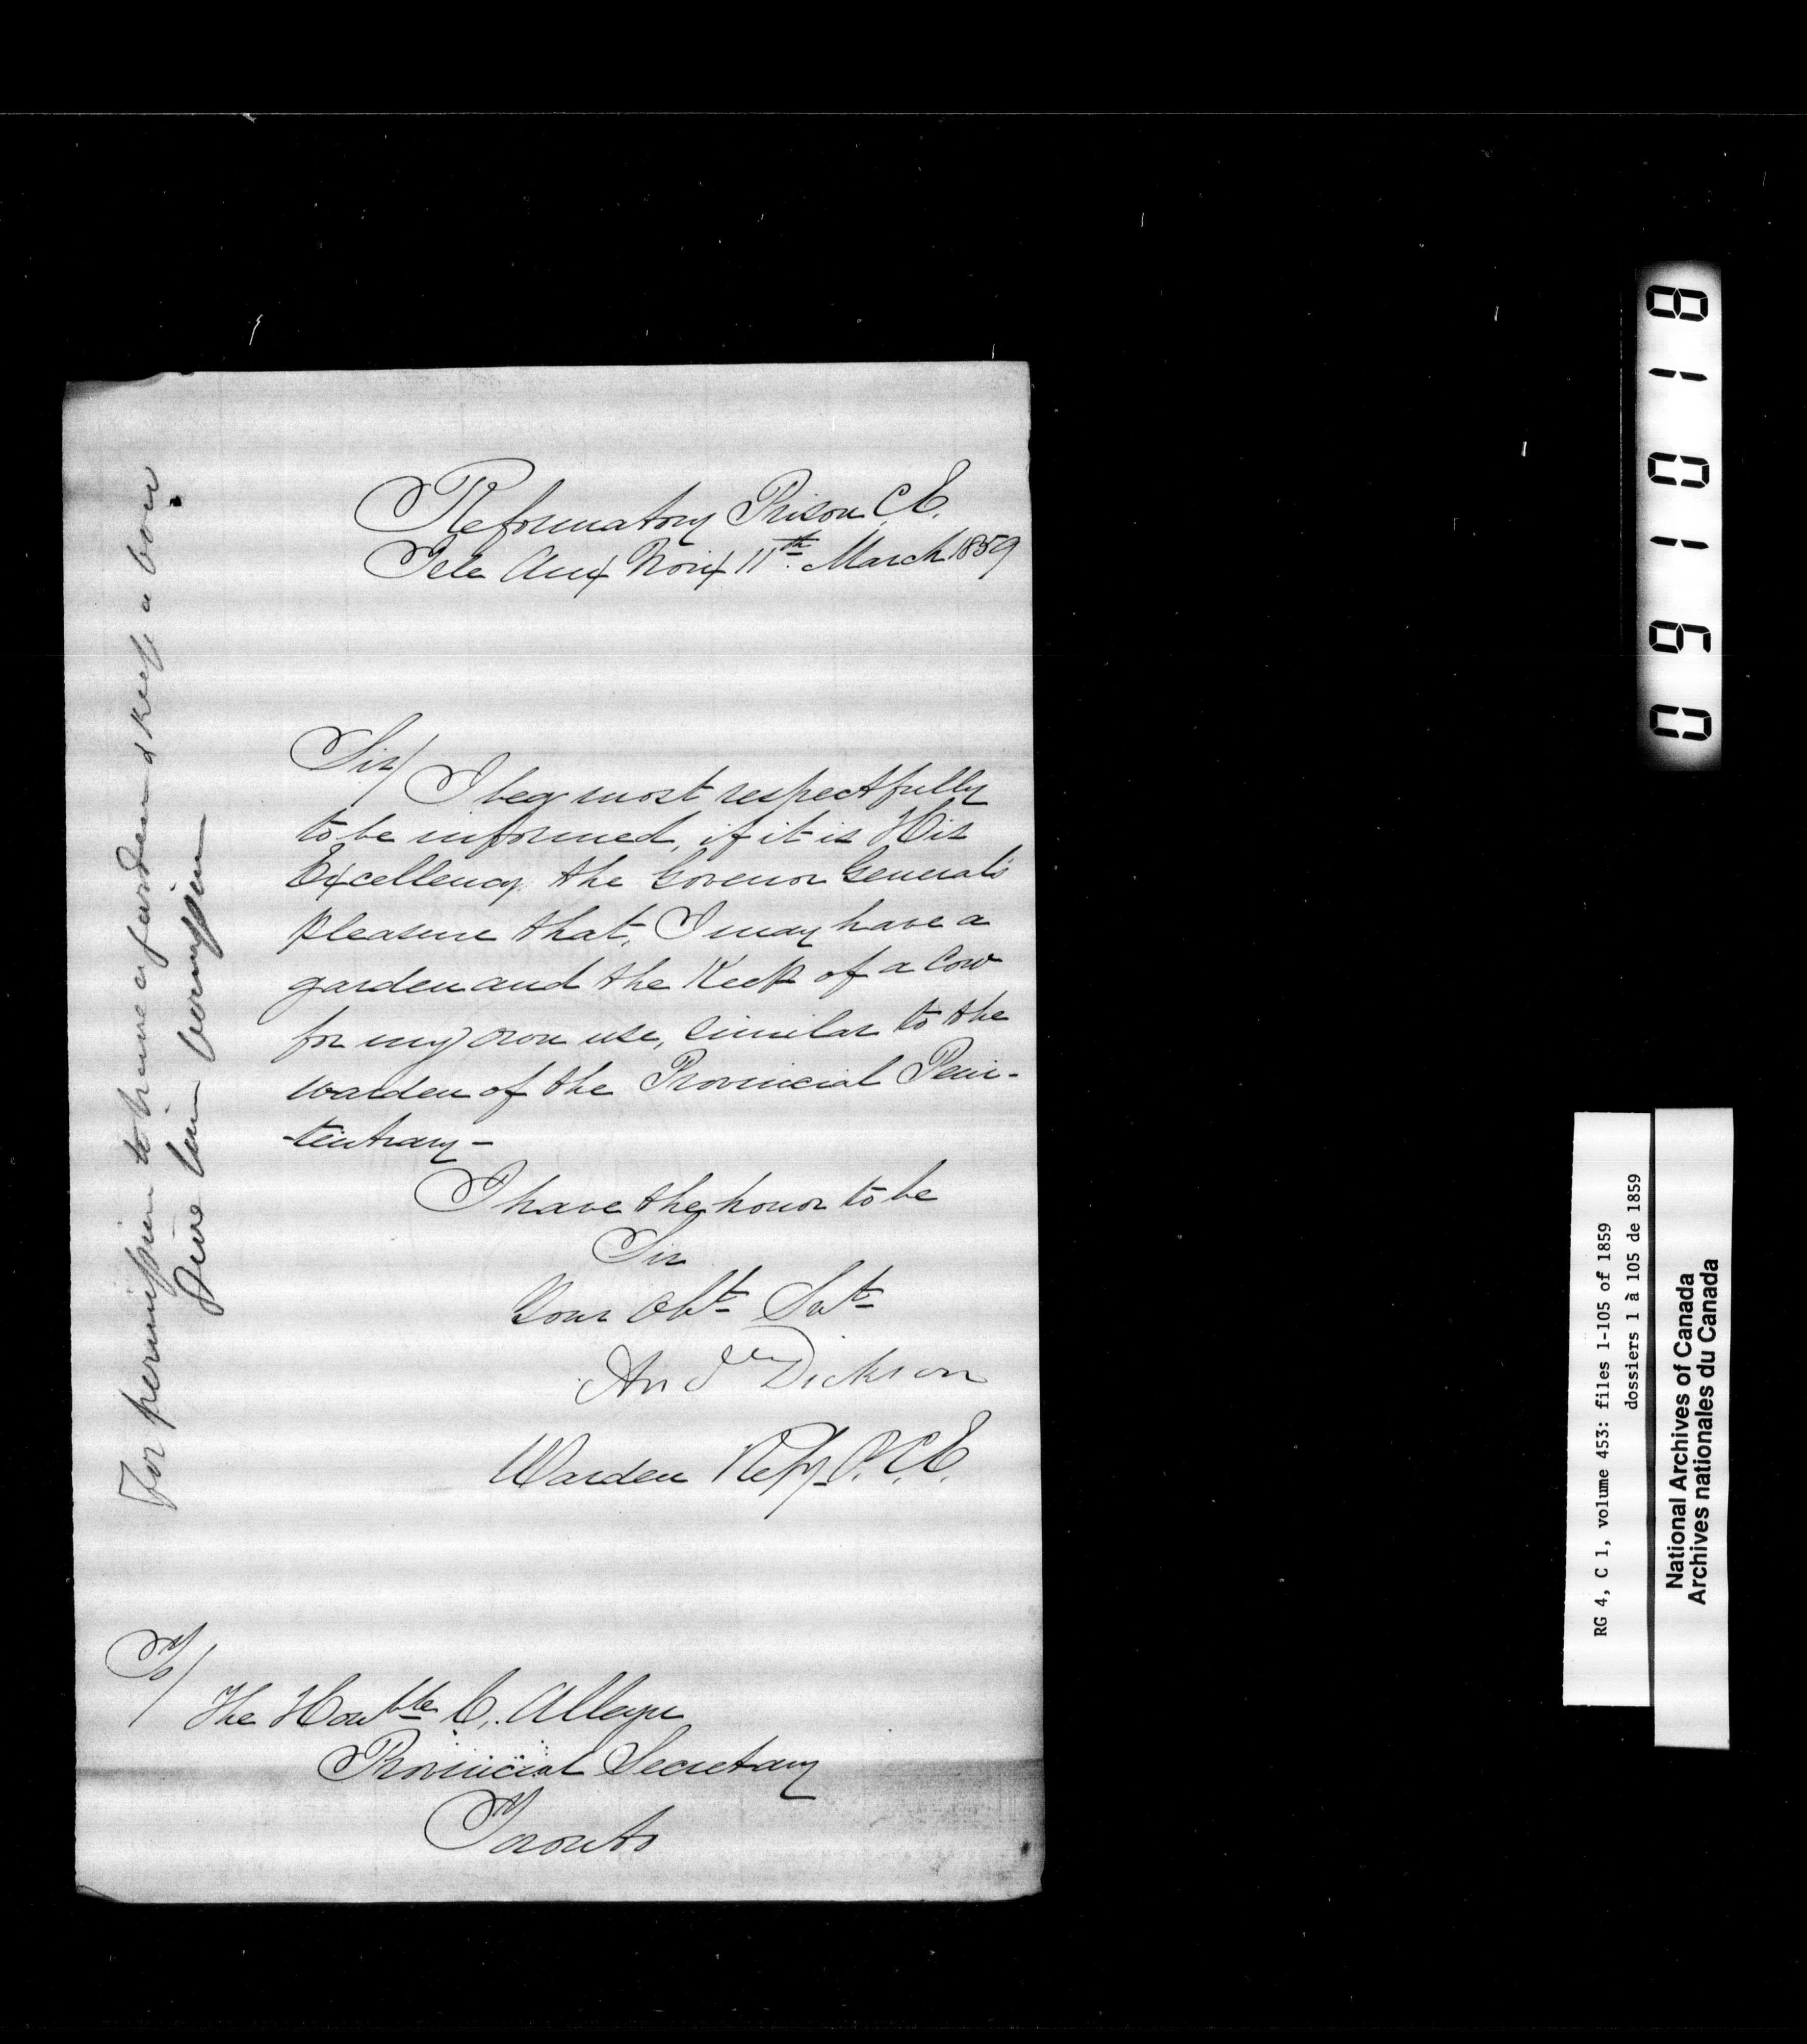 Reformatory Prison C.E.
Isle Aux Noix 11th. March 1859
Sir/
I beg most respectfully
to be informed, if it is His
Excellency the Govenor General's
pleasure that, I may have a
garden and the Keep of a Cow
for my own use, similar to the
warden of the Provincial Peni-
-tentrary-
I have the honor to be
Sir
Your Obt Svt
Andw Dickson
Warden Refy P. C.E.
To/
The Honble C. Alleyn
Provincial Secretary
Toronto
For permission to have a garden & keep a cow
Give him permission
091018
RG 4, C 1, volume 453: files 1-105 of 1859
dossiers 1 à 105 de 1859
National Archives of Canada
Archives nationales du Canada